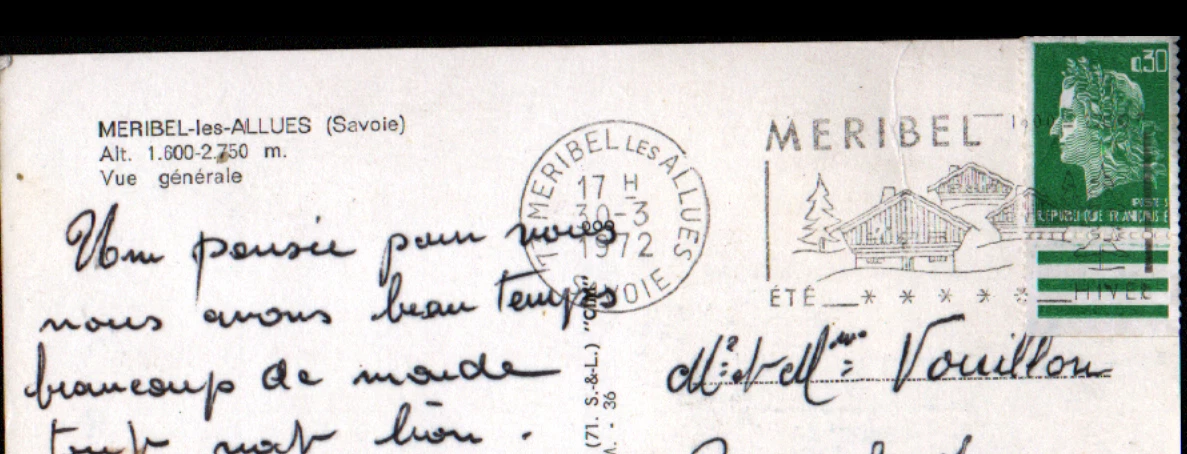 MERIBEL-les-ALLUES (Savoie)
Alt. 1.600-2.750 m.
Vue générale
Une pensée pour vous
nous avons beau temps
beaucoup de monde
tout va bien.
73 MERIBEL LES ALLUES
17 H
30-3
1972
SAVOIE
MERIBEL
ÉTÉ * * * * * HIVER
0,30
POSTES
REPUBLIQUE FRANÇAISE
(71. S.-&-L.) "CIM"
36
Mr et Mme Vouillon